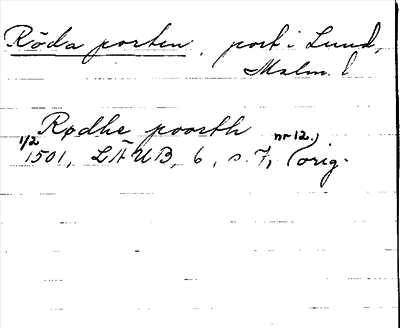 Röda porten, port i Lund,
Malm. l
Rødhe poorth
1/2 1501, LÄUB, 6, s. 7, nr 12, (orig.